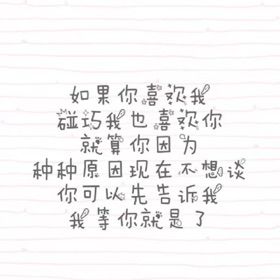 如果你喜欢我
碰巧我也喜欢你
就算你因为
种种原因现在不想谈
你可以先告诉我
我等你就是了